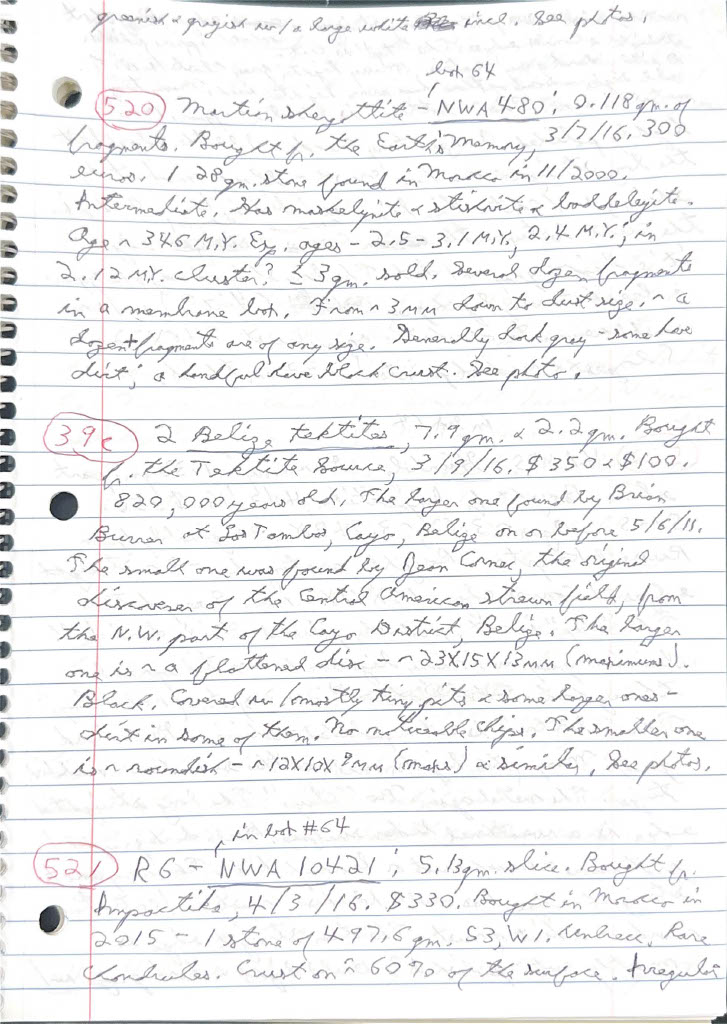 greenish & grayish w/ a large white incl. See photos.
box 64
520 Martian shergottite - NWA 480; 0.118 gm. of
fragments. Bought fr. the Earth's Memory, 3/7/16. 300
euros. 1 28 gm. stone found in Morocco in 11/2000.
Intermediate. Has maskelynite & stishovite & baddeleyite.
Age ~ 346 M.Y. Exp. ages - 2.5-3.1 M.Y., 2.4 M.Y.; in
2.12 MY. cluster? ≤ 3 gm. sold. Several dozen fragments
in a membrane box. From ~ 3 mm down to dust size. ~ a
dozen+ fragments are of any size. Generally dark gray - some have
dirt; a handful have black crust. See photo.
39c 2 Belize tektites, 7.9 gm. & 2.2 gm. Bought
fr. the Tektite Source, 3/9/16. $350 & $100.
820,000 years old. The larger one found by Brian
Burrer at Los Tambos, Cayo, Belize on or before 5/6/11.
The small one was found by Jean Cornec, the original
discoverer of the Central American strewn field, from
the N.W. part of the Cayo District, Belize. The larger
one is ~ a flattened disc - ~ 23X15X13mm (maximums).
Black. Covered w/ mostly tiny pits & some larger ones -
dirt in some of them. No noticeable chips. The smaller one
is ~ roundish - ~ 12X10X9mm (maxs) & similar. See photos.
in box #64
521 R6 - NWA 10421; 5.13 gm. slice. Bought fr.
Impactika, 4/3/16. $330. Bought in Morocco in
2015 - 1 stone of 497.6 gm. S3, W1. Unbrecc. Rare
chondrules. Crust on ~ 60% of the surface. Irregular